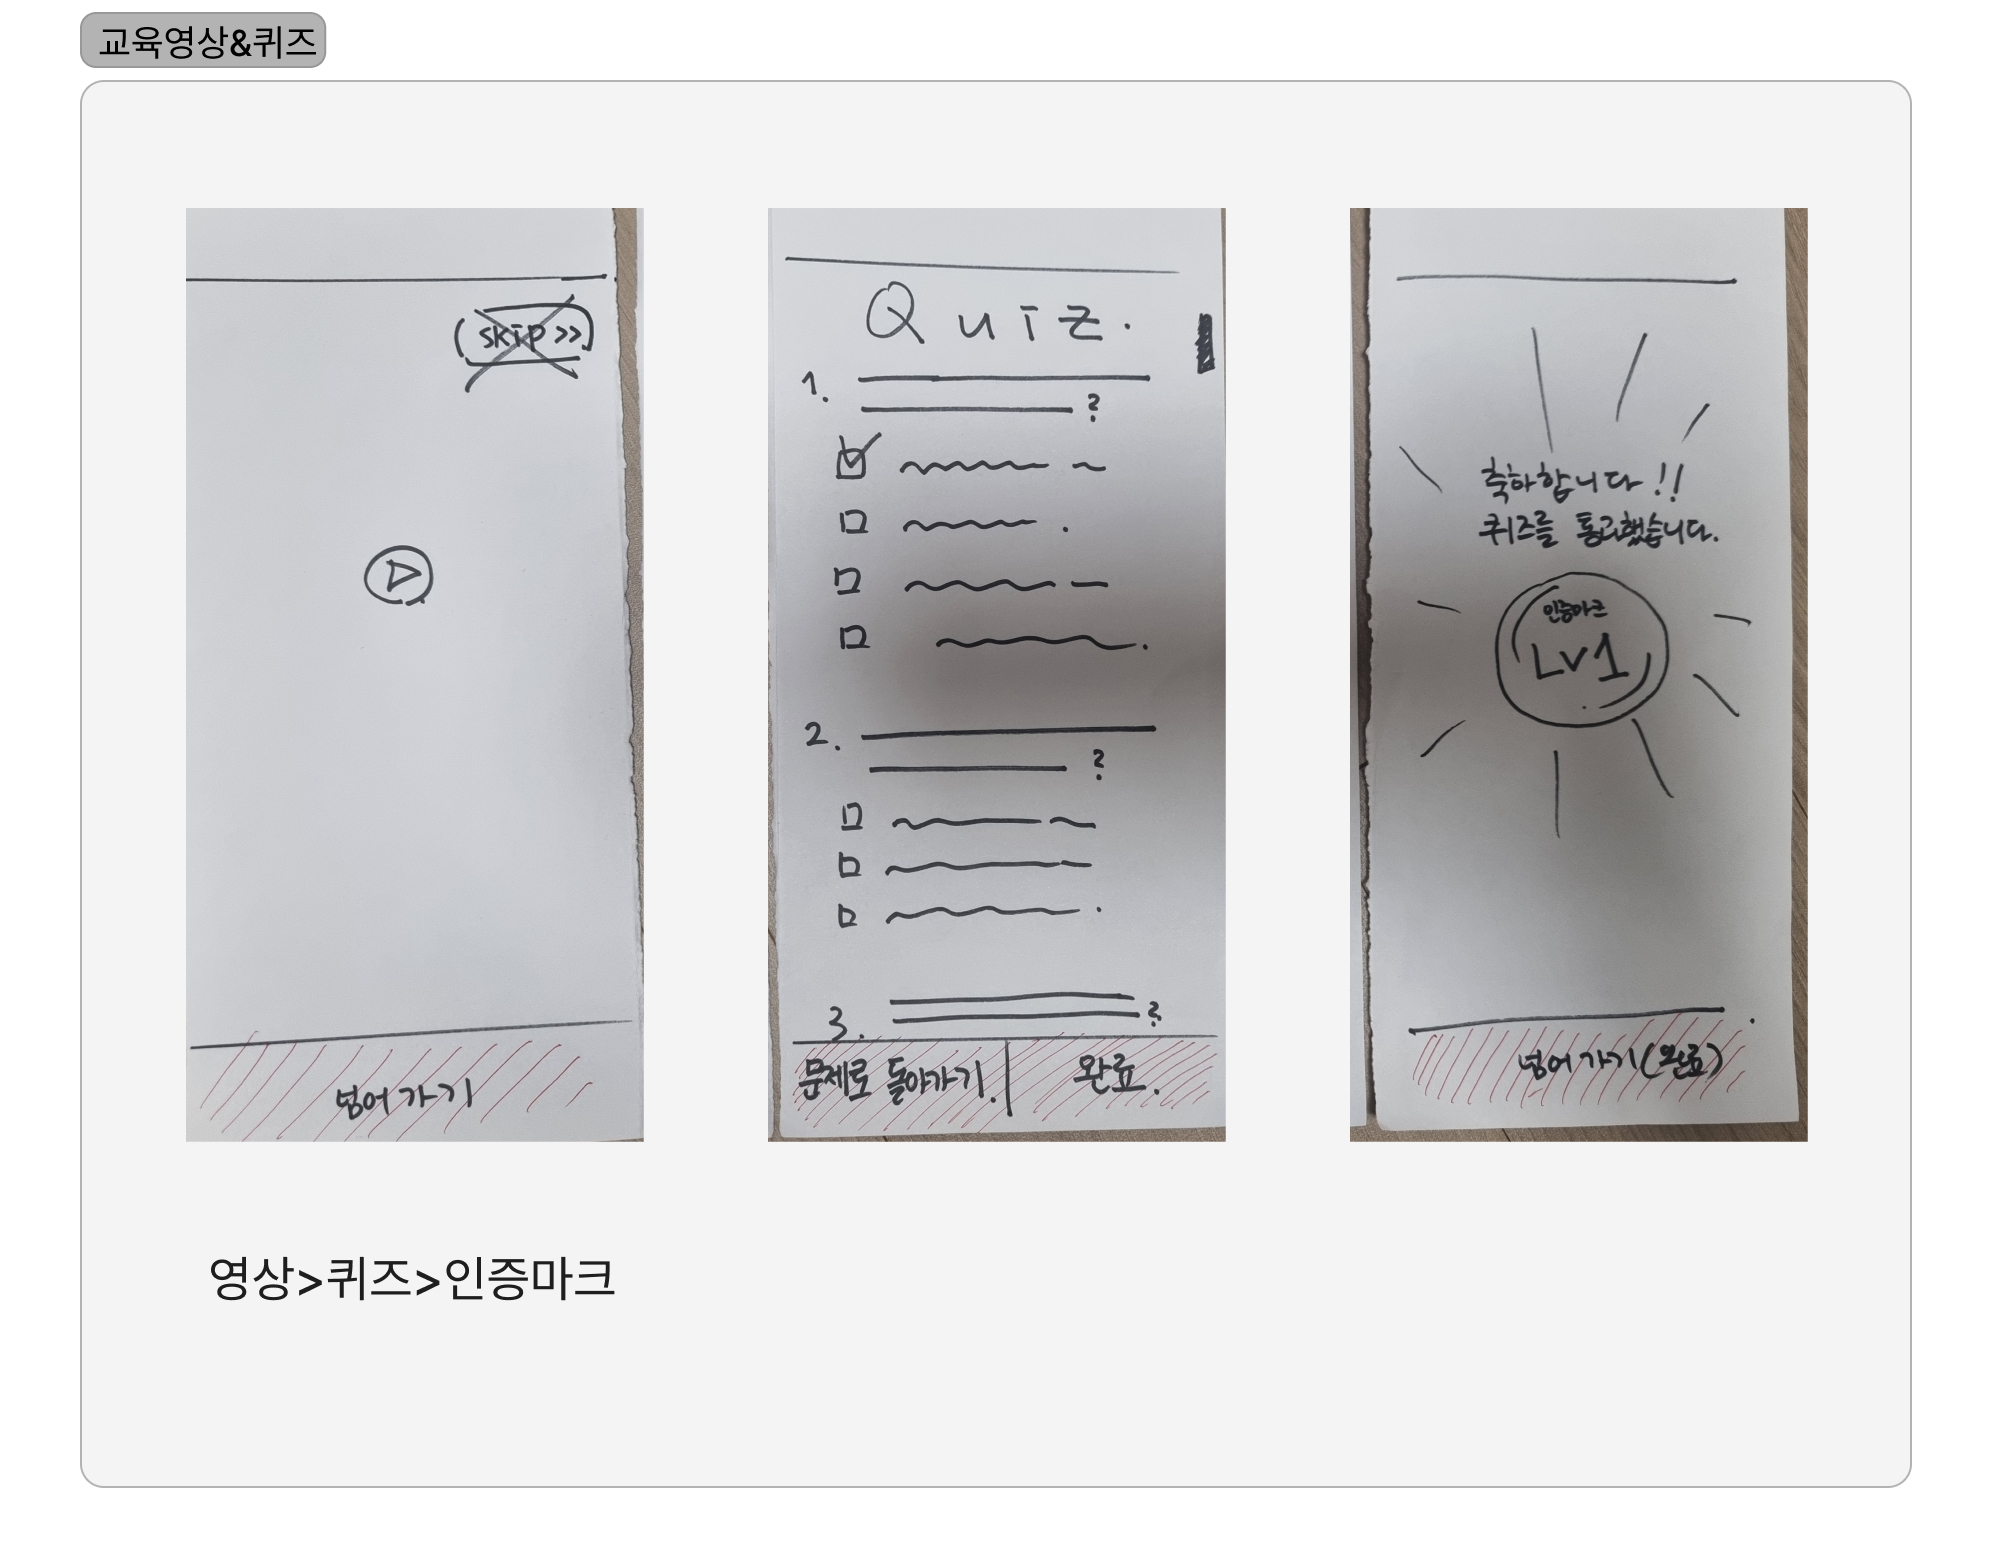 교육영상&퀴즈
skip >>
넘어가기
Quiz.
1.
?
2.
?
3.
?
문제로 돌아가기.
완료.
축하합니다!!
퀴즈를 통과했습니다.
인증마크
Lv1
넘어가기(완료)
영상>퀴즈>인증마크